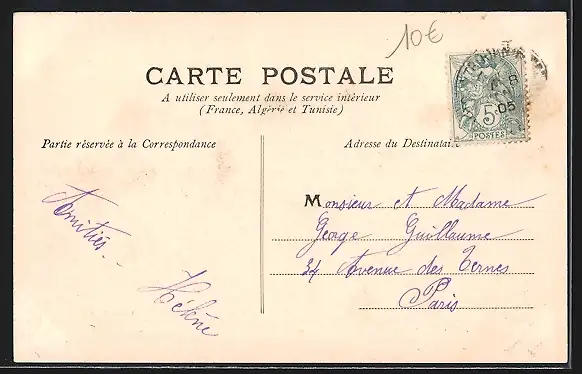 10€
CARTE POSTALE
A utiliser seulement dans le service intérieur
(France, Algérie et Tunisie)
Partie réservée à la Correspondance
Adresse du Destinataire
5
POSTES
05
Amitiés
Hélène
Monsieur et Madame
George Guillaume
34 Avenue des Ternes
Paris